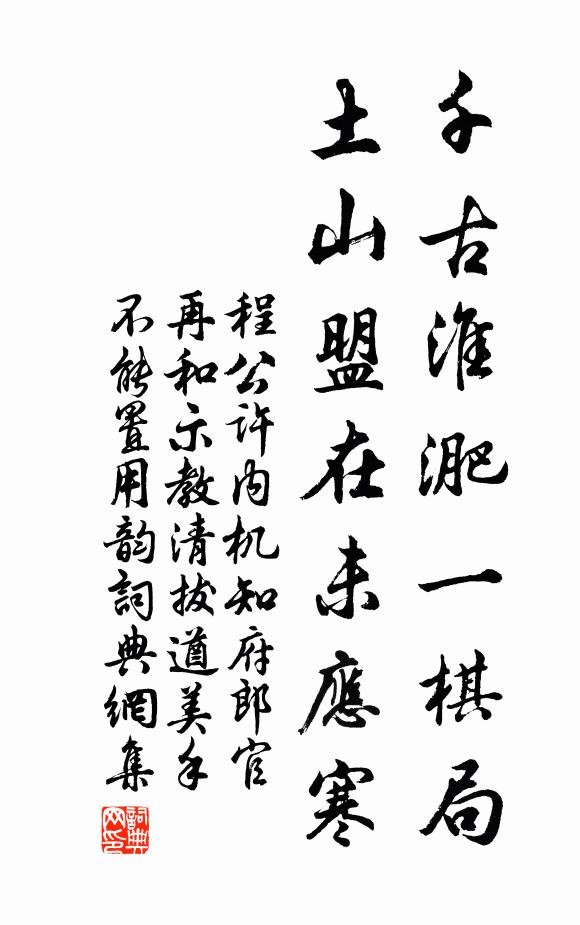 千古淮淝一棋局
土山盟在未應寒
程公許内机知府郎官
再和示教清拔遒美手
不能置用韵詞典網集
詞典网印